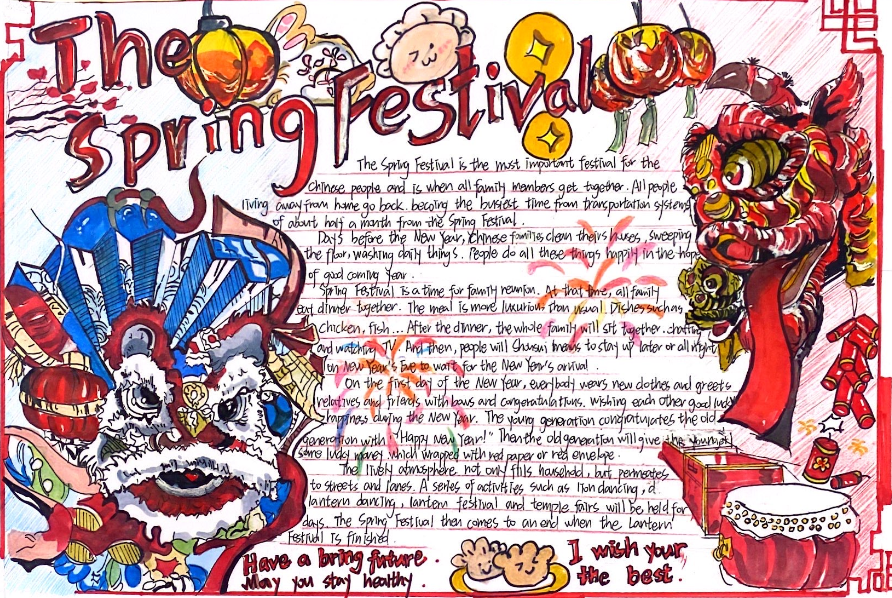 The
Spring Festival
The Spring Festival is the most important festival for the
Chinese people and is when all family members get together. All people
living away from home go back. becoing the busiest time from transportation systems
of about half a month from the Spring Festival.
Days before the New Year, Chinese families clean theirs houses, sweeping
the floor, washing daily things. People do all these things happily in the hope
of good coming Year.
Spring Festival is a time for family reunion. At that time, all family
eat dinner together. The meal is more luxurious than usual. Dishes such as
chicken, fish... After the dinner, the whole family will sit together. chatting
and watching TV. And then, people will Shousui means to stay up later or all night
on New Year's Eve to wait for the New Year's arrival.
On the first day of the New Year, everybody wears new clothes and greets
relatives and friends with bows and congratulations. wishing each other good luck
happiness during the New Year. The young generation congratulates the old
generation with "Happy New Year!" Then the old generation will give the younger
some lucky money which wrapped with red paper or red envelope.
The lively atmosphere not only fills household, but permeates
to streets and lanes. A series of activities such as lion dancing, d
lantern dancing, lantern festival and temple fairs will be held for
days. The Spring Festival then comes to an end when the Lantern
Festival is finished.
Have a bring future.
May you stay healthy.
I wish your
the best.